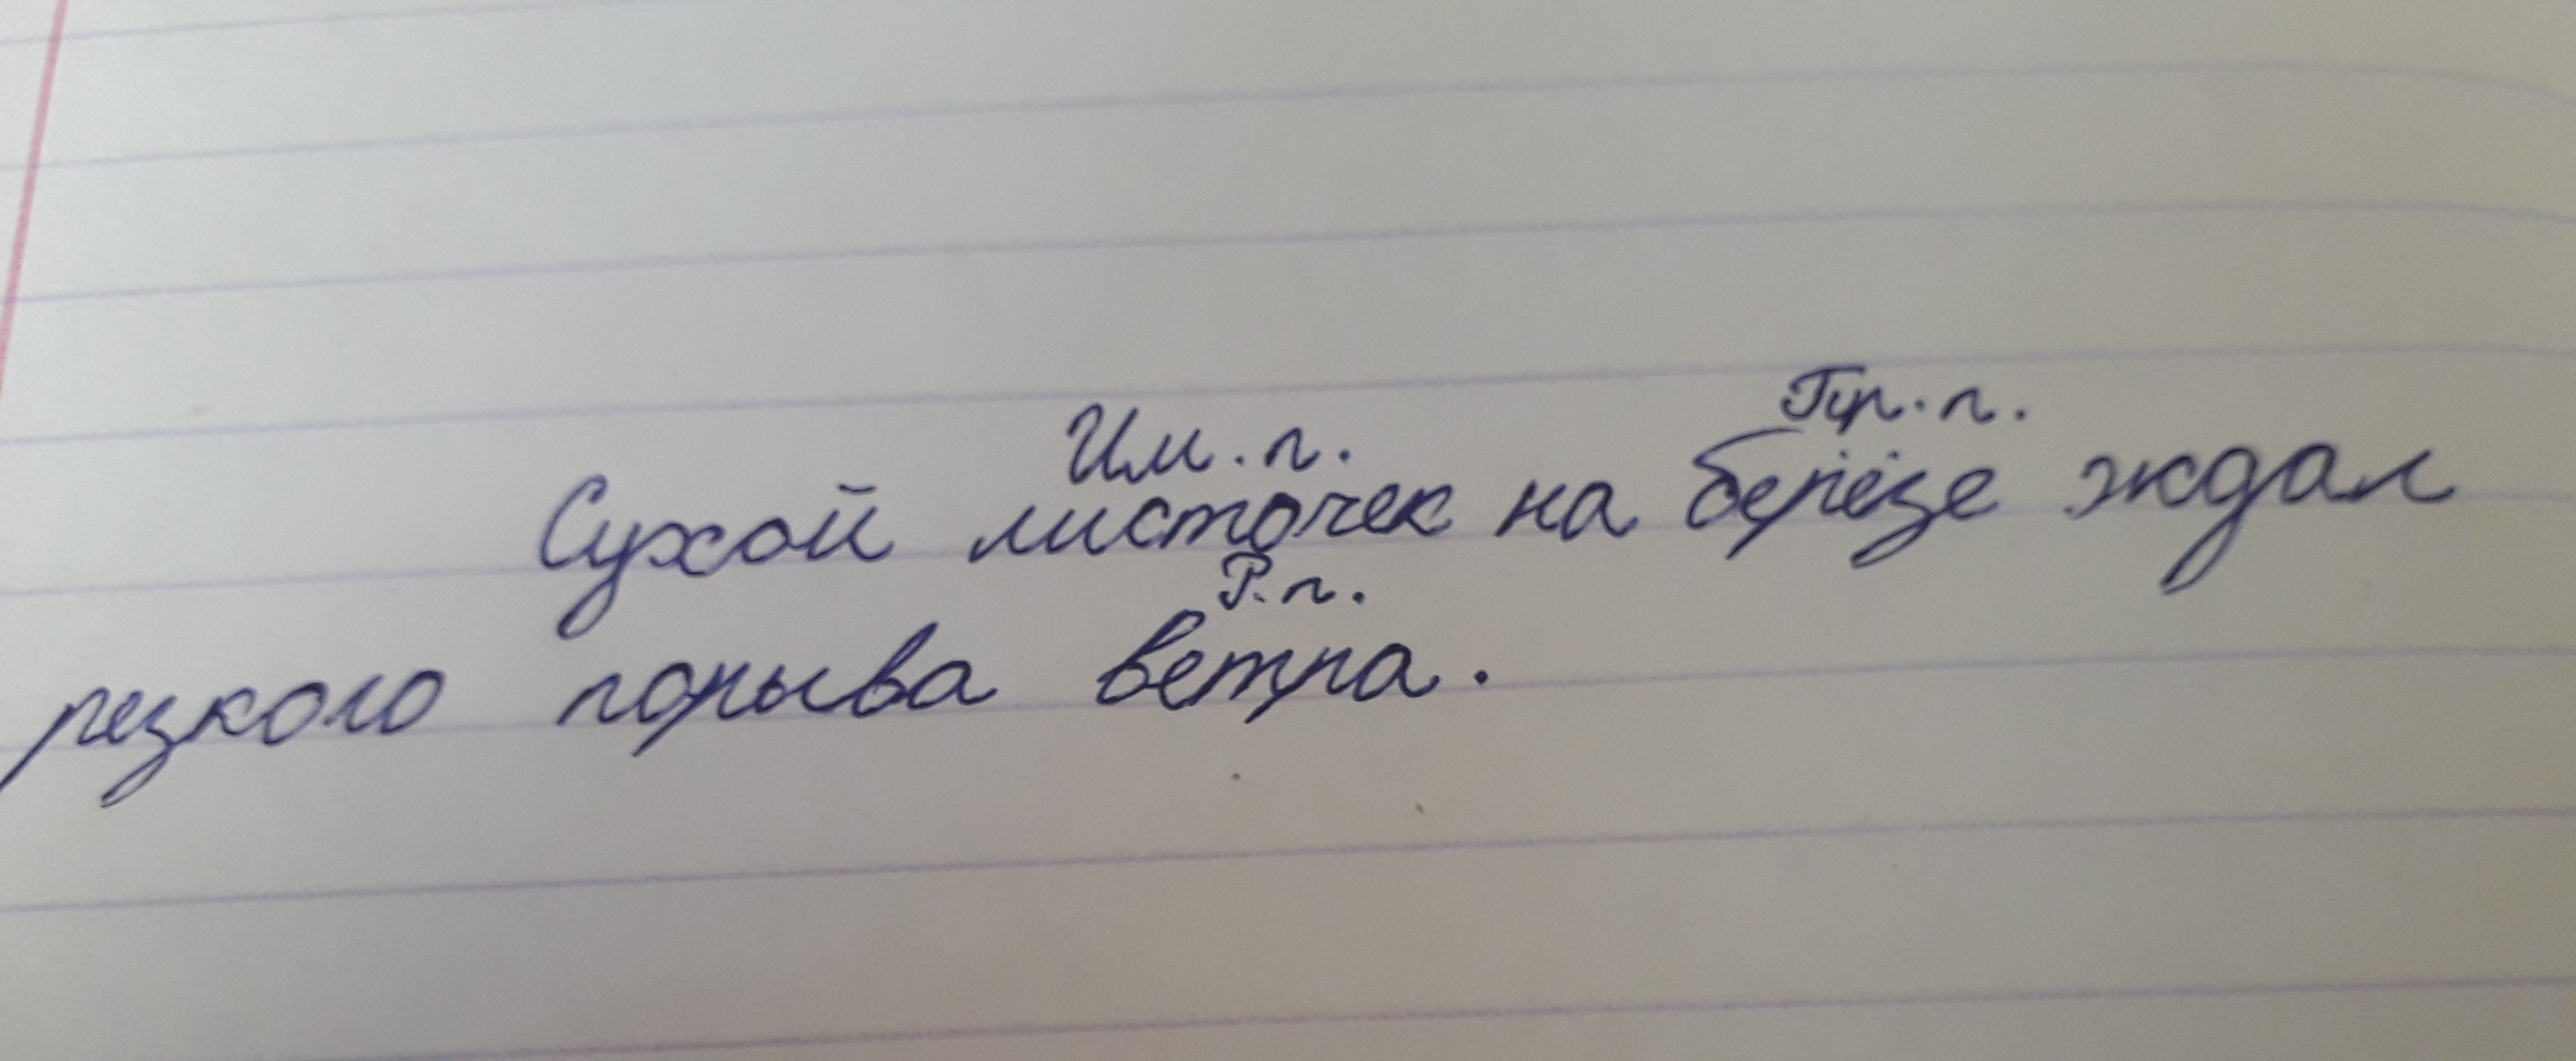 Им. п. Пр. п.
Сухой листочек на берёзе ждал
Р. п.
резкого порыва ветра.